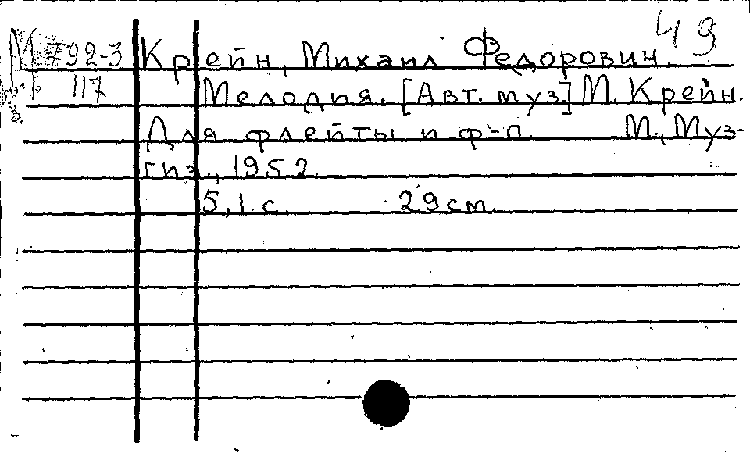 49
М 92-3 Крейн, Михаил Федорович.
117 Мелодия. [Авт. муз.] М. Крейн.
Для флейты и ф-п. М., Муз-
гиз, 1952.
5,1 с. 29 cm.